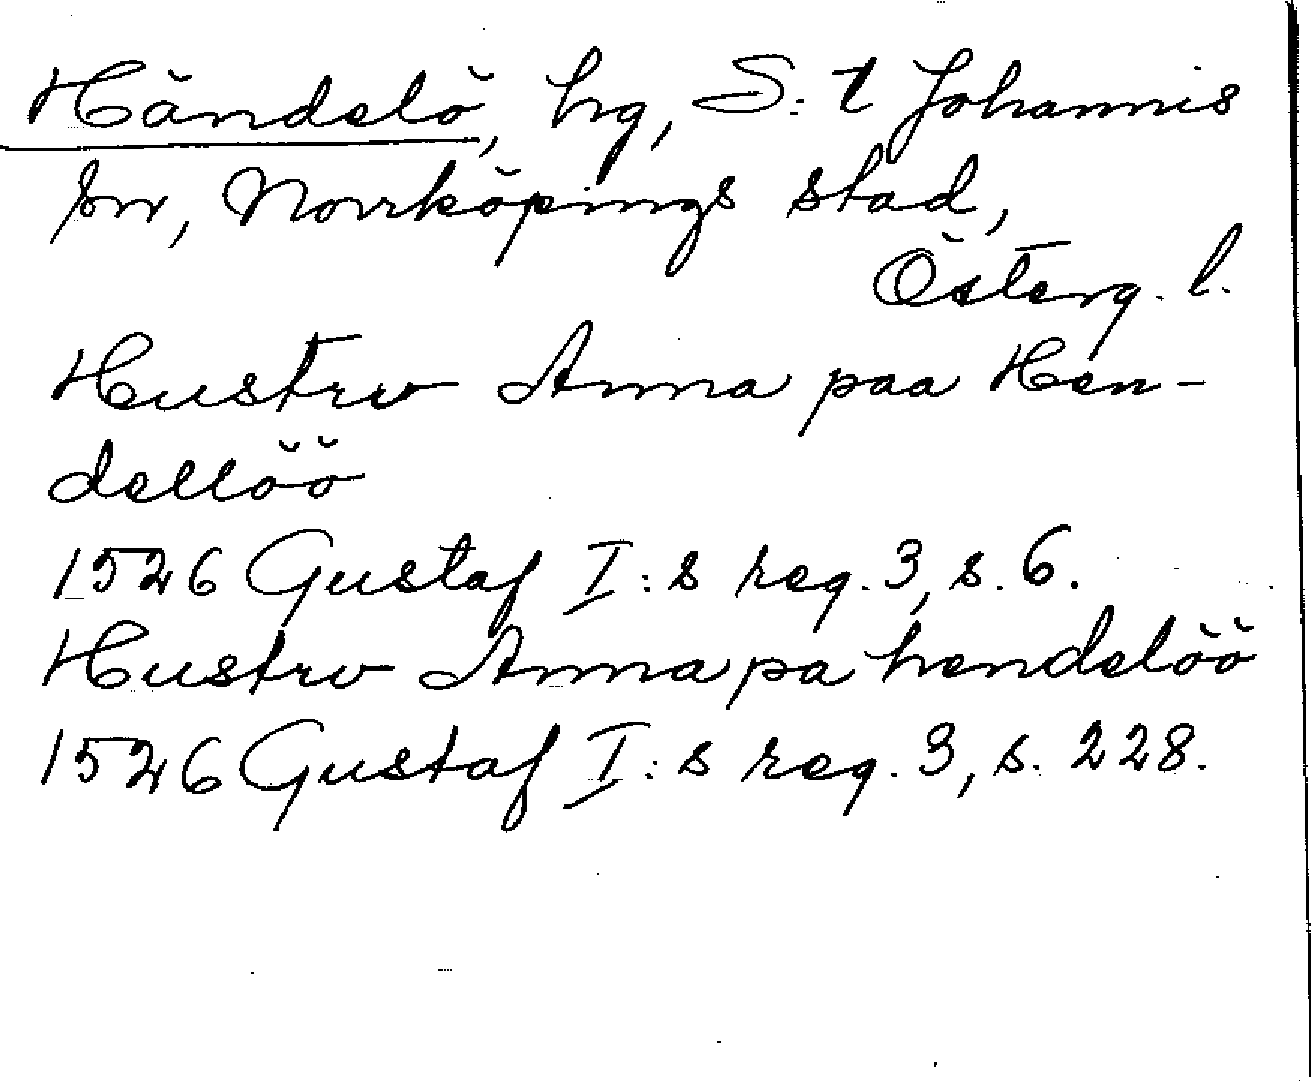 Händelö, hg, S:t Johannis
sn, Norrköpings stad,
Österg. l.
Hustrw Anna paa Hen-
dellöö
1526 Gustaf I:s reg. 3, s. 6.
Hustrw Anna pa hendelöö
1526 Gustaf I:s reg. 3, s. 228.